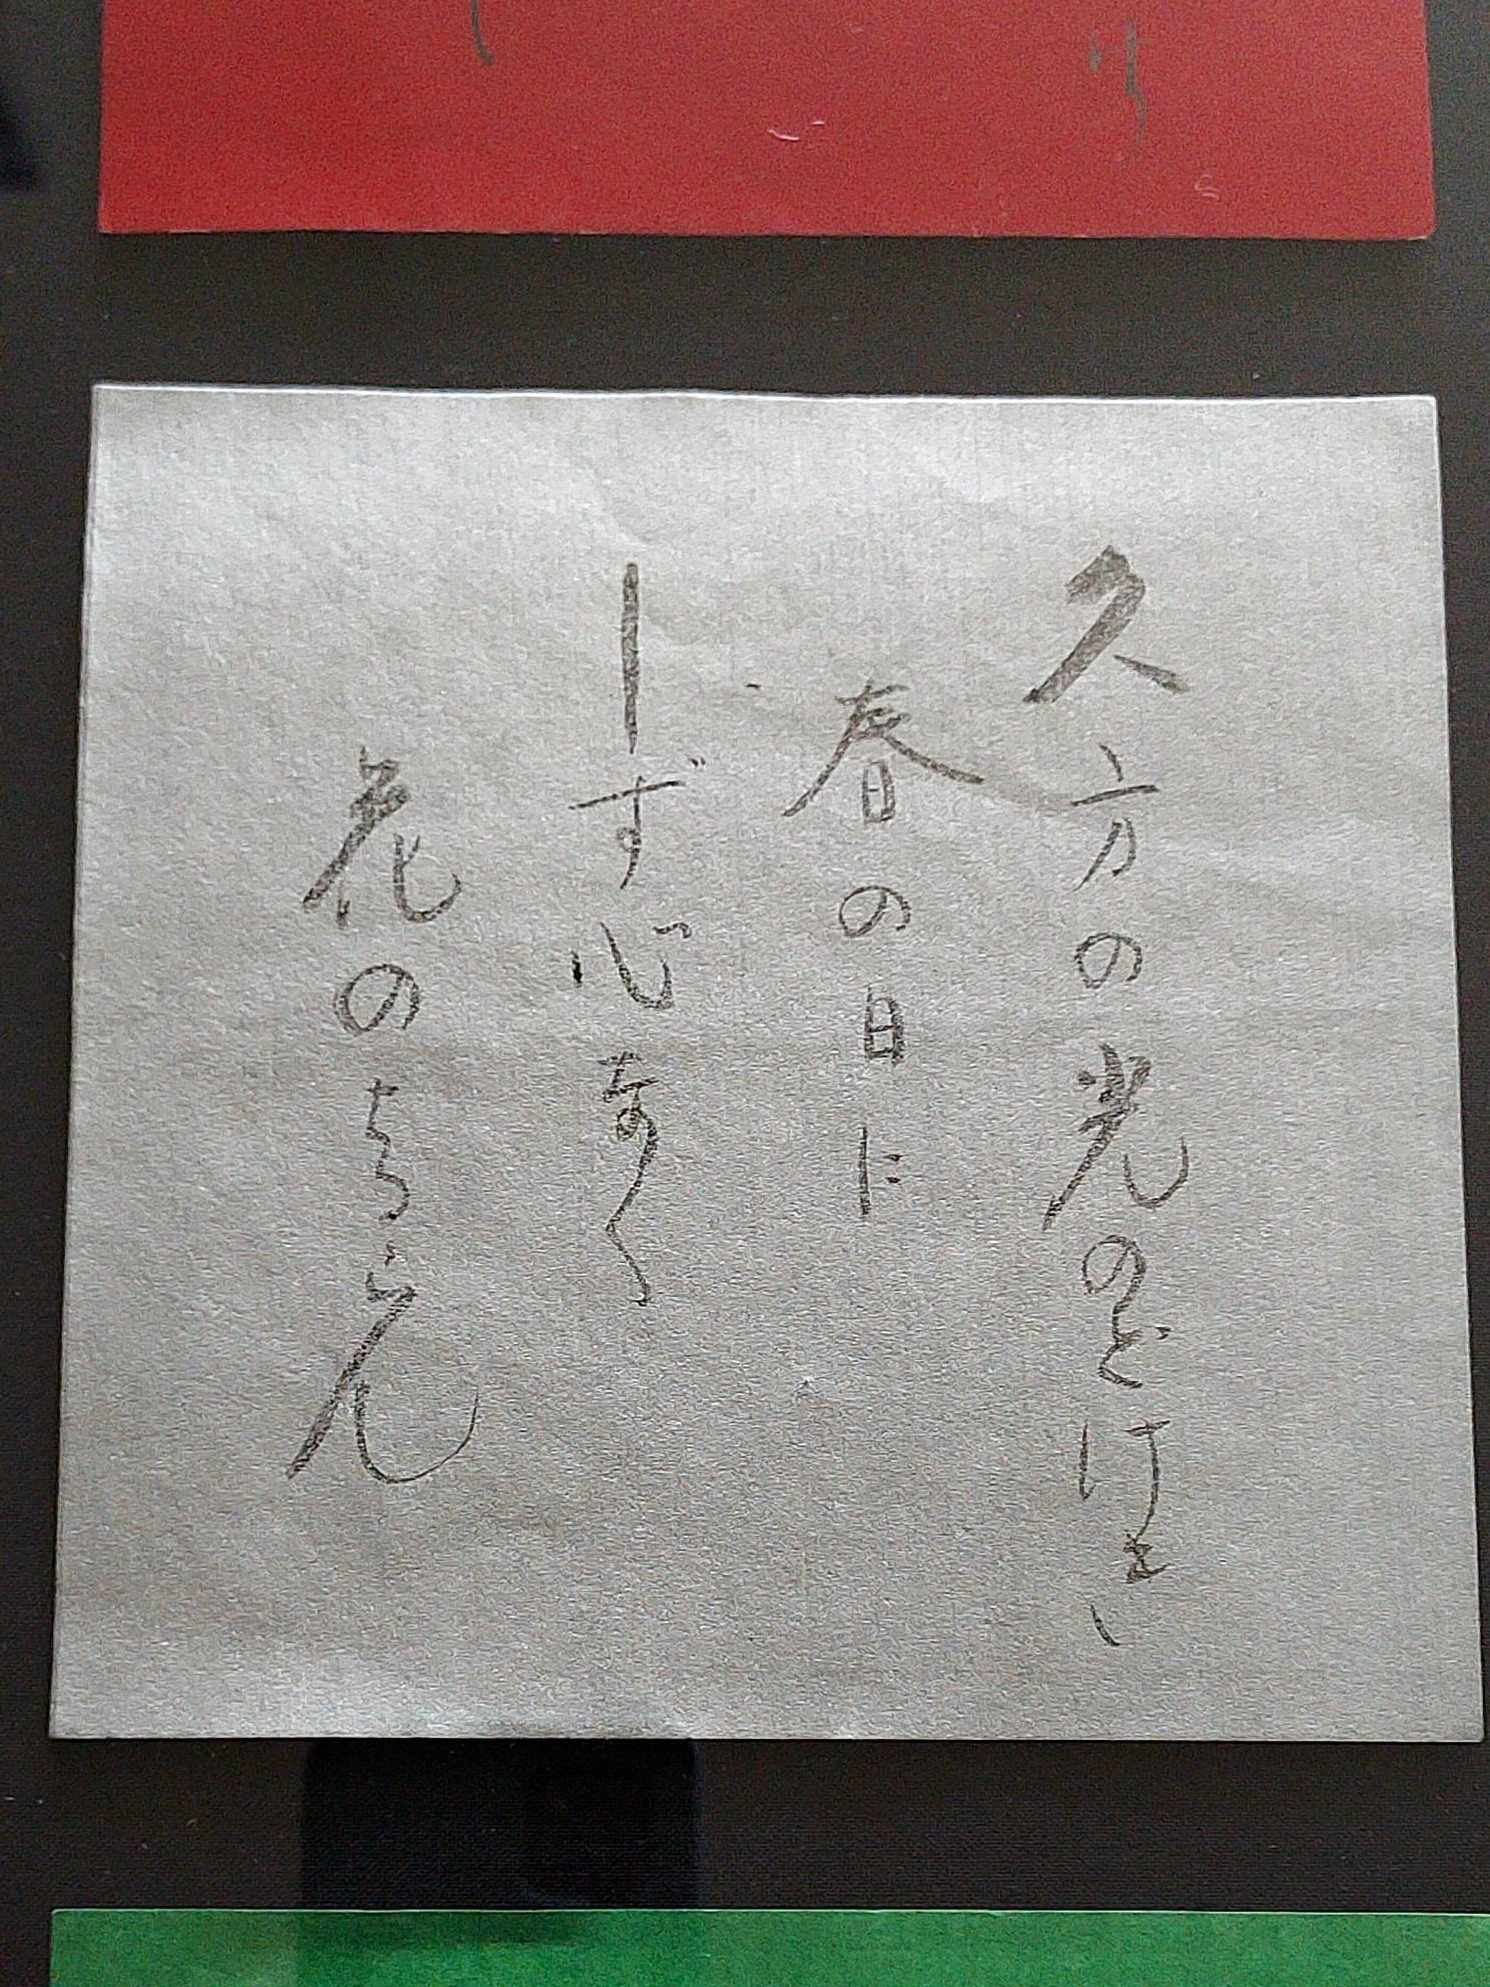 久方の光のどけき
春の日に
しず心なく
花のちるらむ